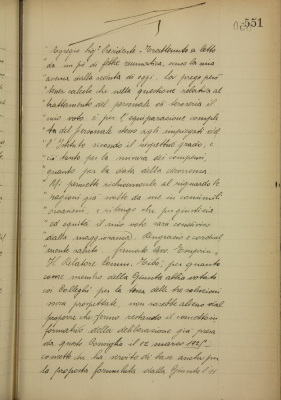 551
"Egregio Sig. Presidente - Trattenuto a letto
"da un po' di febbre reumatica, sono la mia
"assenza dalla seduta di oggi. La prego però
"tener calcolo che nella questione relativa al
"trattamento del personale ed tesoreria il
"mio voto è per l'equiparazione comple
"ta del personale stesso agli impiegati del
"l'Istituto secondo il rispettivo grado, e
"ciò tanto per la misura dei compensi,
"quanto per la data della decorrenza
"Mi permetto richiamare al riguardo le
"ragioni già svolte da me in
"precedenti, e ritengo che per giustizia
"ed equità il mio voto sarà condiviso
"dalla maggioranza. Ringrazio e cordial
"mente saluto - firmato
"Il Relatore Comm. per quanto
come membro della Giunta abbia votato
coi Colleghi per la terza delle tre soluzioni
sopra prospettate, non sarebbe alieno dal
proporre che fermo restando il concetto in
formatore della deliberazione già presa
da questo Consiglio il 12 marzo 1921 -
concetto che ha servito di base anche per
la proposta formulata dalla Giunta il 25